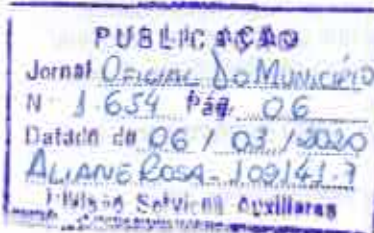 PUBLICAÇÃO
Jornal OFICIAL DO MUNICÍPIO
N 1.654 Pág. 06
Datado de 06 / 03 / 2020
ALIANE ROSA - 109141-7
Divisão Serviços Auxiliares